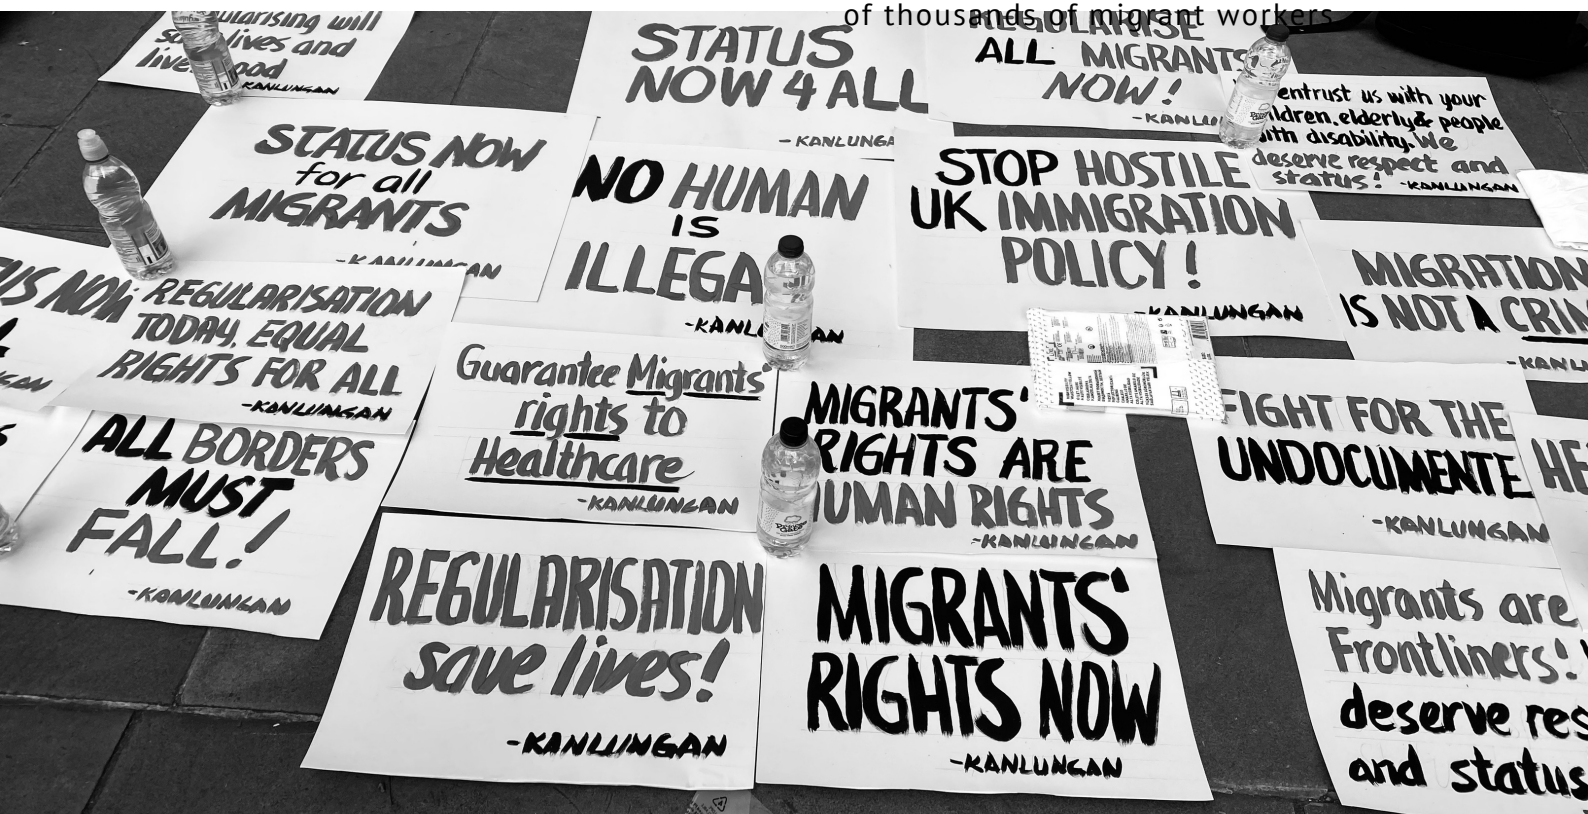 of thousands of migrant workers
will
lives and
KANLUNGAN
STATUS
NOW 4 ALL
REGULARISE
ALL MIGRANTS
NOW!
entrust us with your
elderly & people
with disability. We
deserve respect and
status! -KANLUNGAN
STATUS NOW
for all
MIGRANTS
-KANLUNGAN
NO HUMAN
IS
STOP HOSTILE
UK IMMIGRATION
POLICY!
-KANLUNGAN
MIGRATION
IS NOT A
NOW
REGULARISATION
TODAY, EQUAL
RIGHTS FOR ALL
-KANLUNGAN
Guarantee Migrants'
rights to
Healthcare
-KANLUNGAN
MIGRANTS'
RIGHTS ARE
HUMAN RIGHTS
-KANLUNGAN
FIGHT FOR THE
-KANLUNGAN
ALL BORDERS
MUST
FALL!
-KANLUNGAN
REGULARISATION
save lives!
-KANLUNGAN
MIGRANTS'
RIGHTS NOW
-KANLUNGAN
Migrants are
Frontliners!
deserve
and status